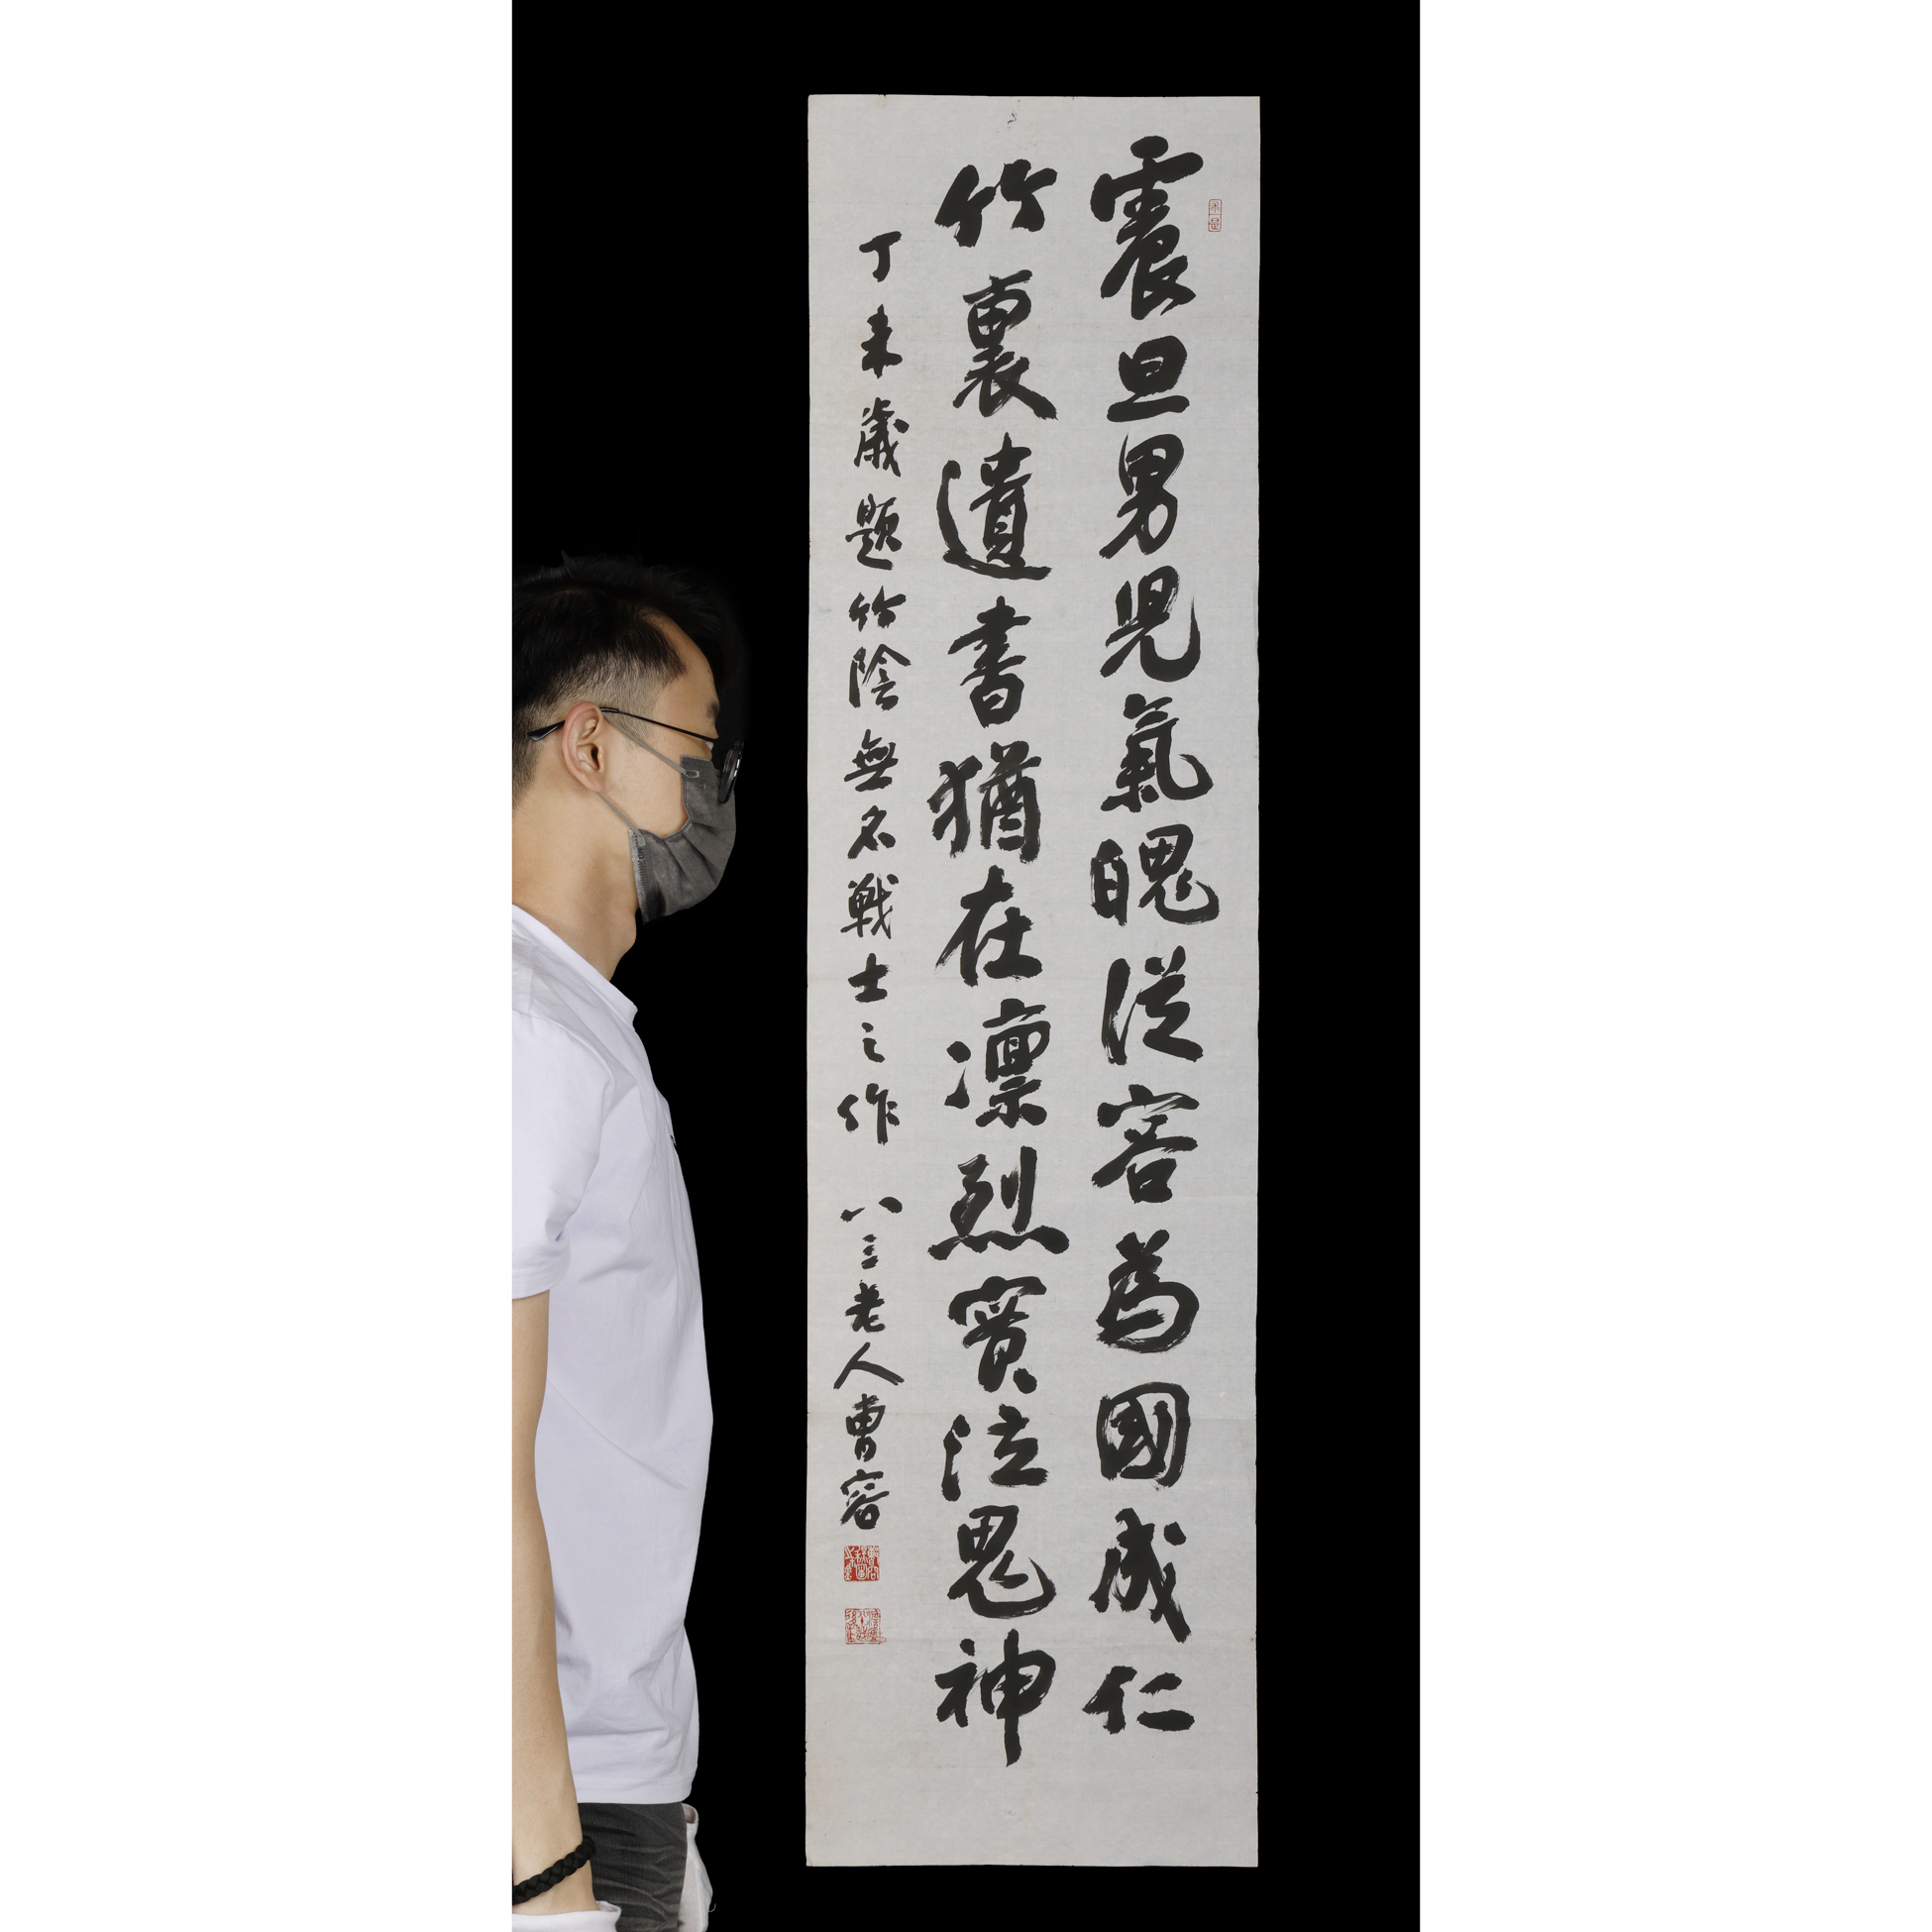 震旦男児氣魄從容為國成仁
竹裏遺書猶在凛烈實泣鬼神
丁未歲題竹陰無名戰士之作 八三老人曹容